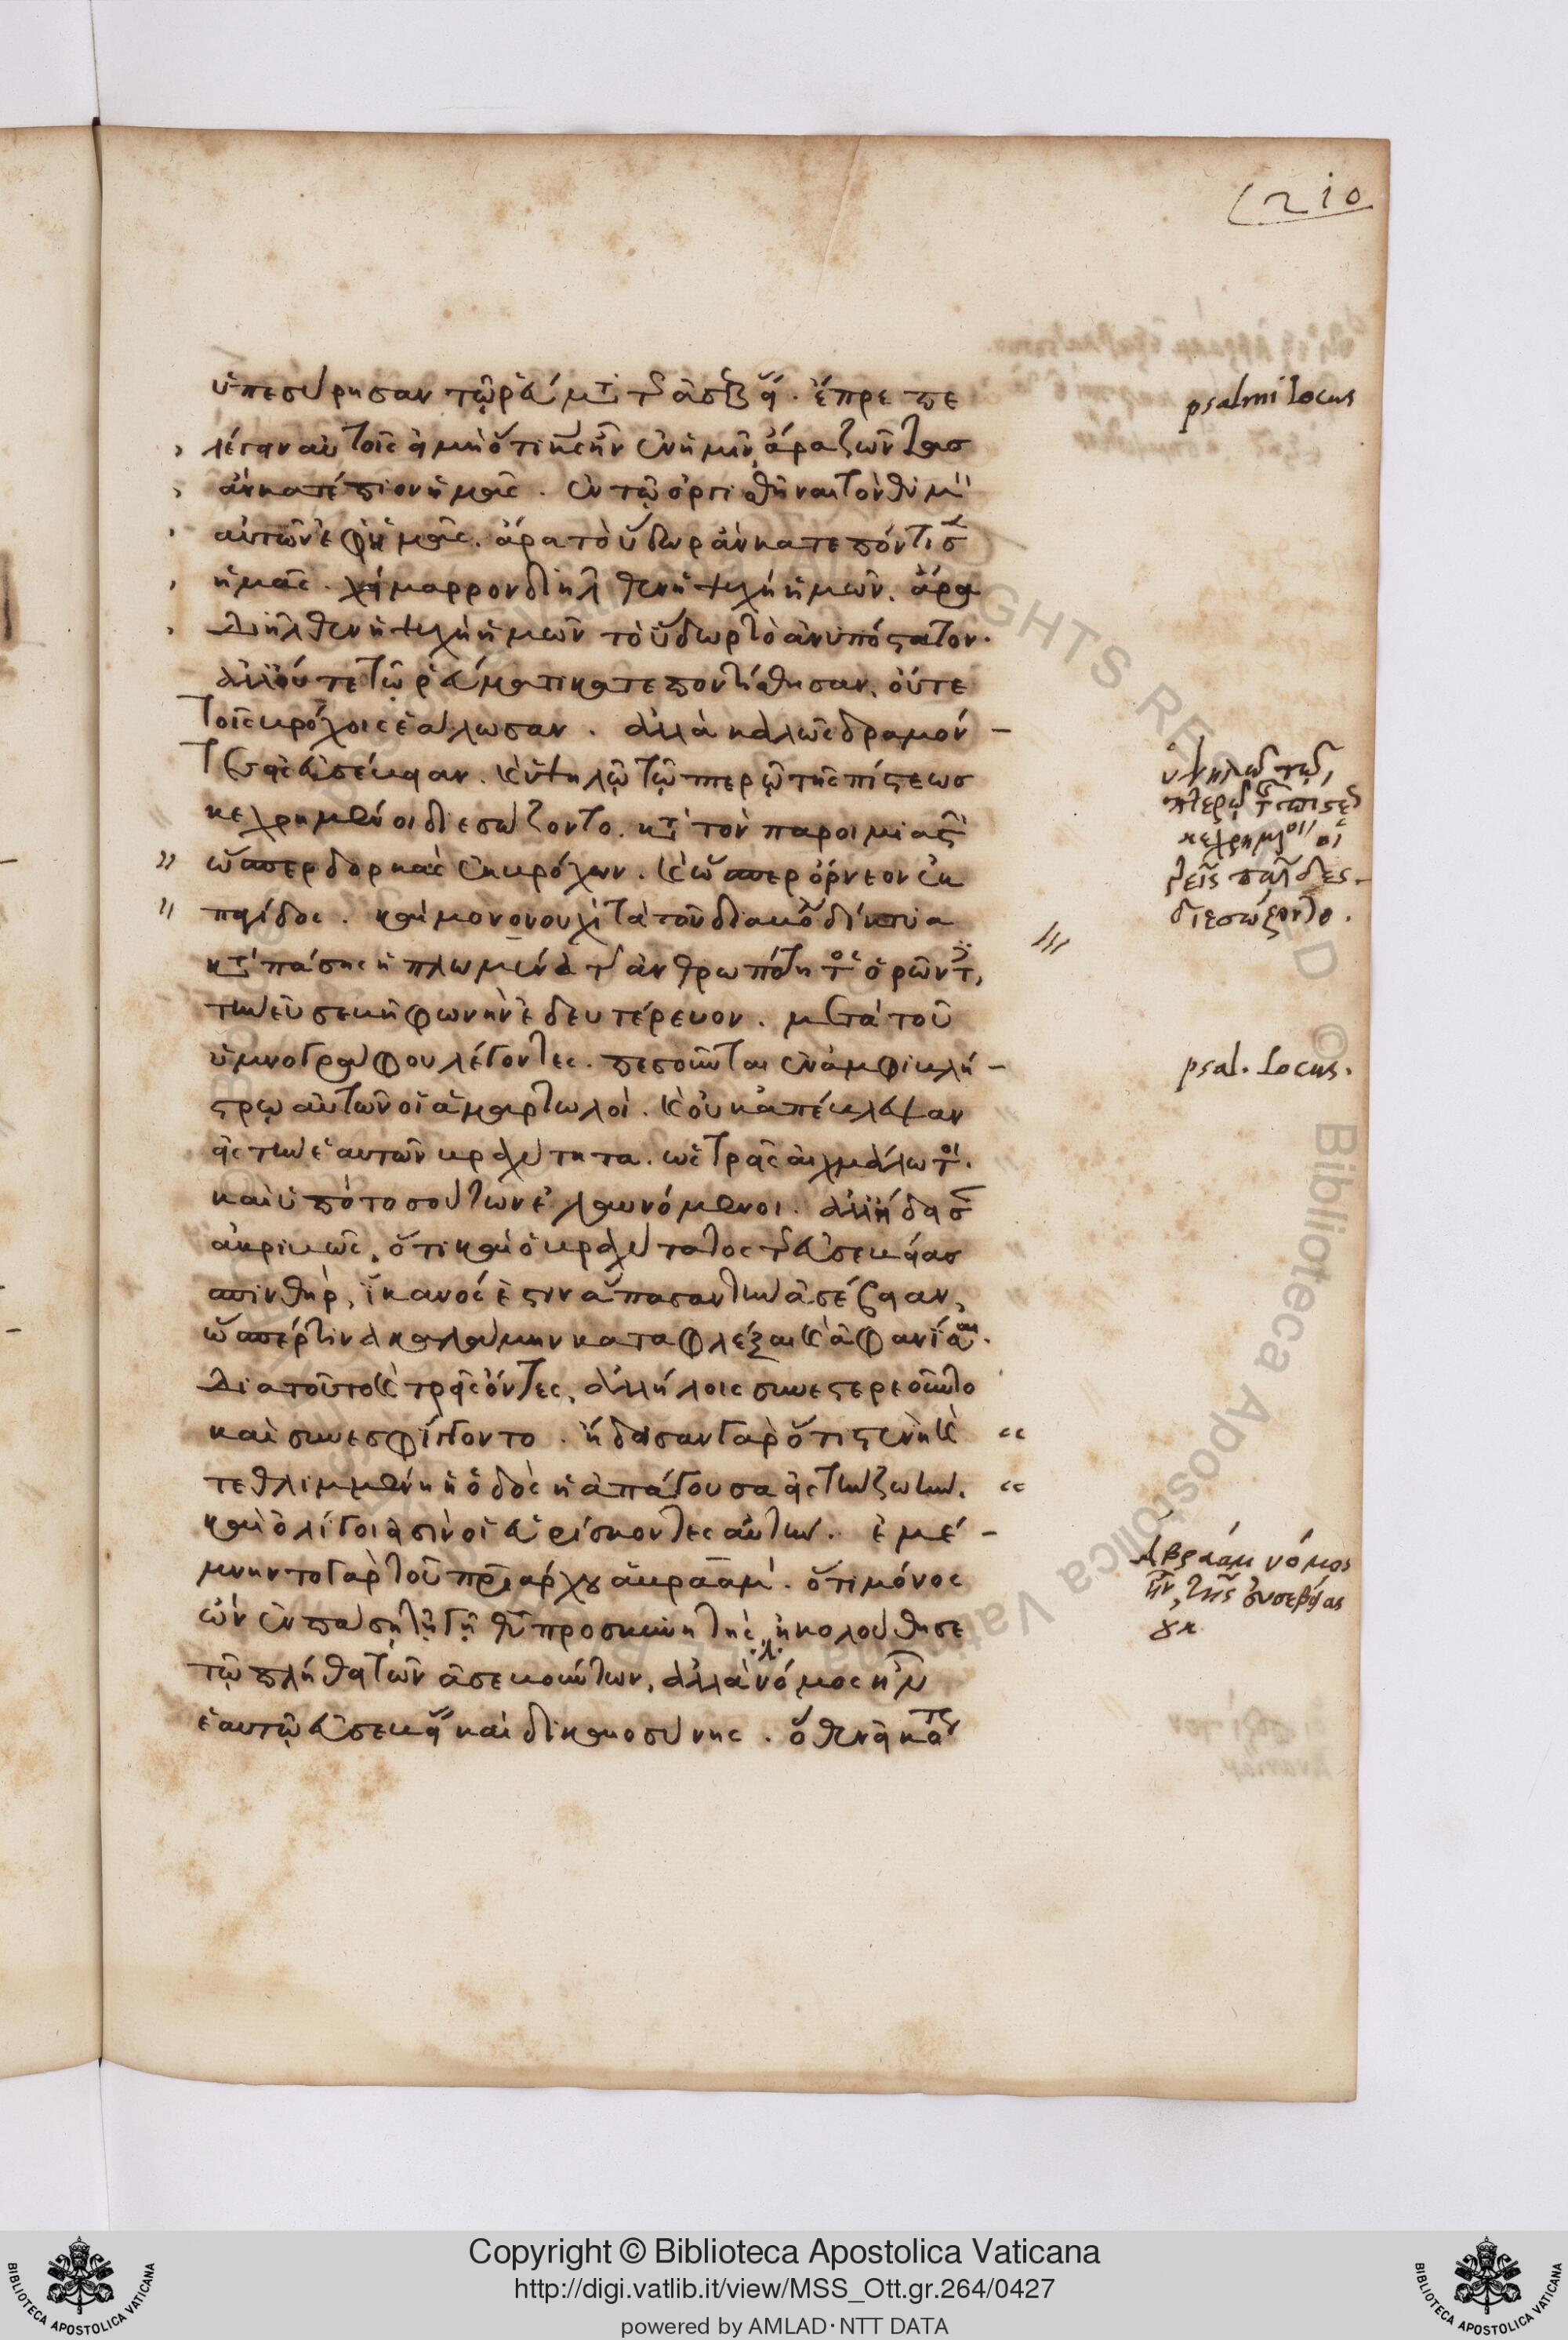 210
ὑπεσύρησαν τῷ ῥεύματι τῆς ἀσεβείας. ἔπρεπε
psalmi locus
λέγειν αὐτοῖς εἰ μὴ ὅτι κύριος ἦν ἐν ἡμῖν, ἄρα ζῶντας
ἂν κατέπιον ἡμᾶς. ἐν τῷ ὀργισθῆναι τὸν θυμὸν
αὐτῶν ἐφ' ἡμᾶς. ἄρα τὸ ὕδωρ ἂν κατεπόντισεν
ἡμᾶς. χείμαρρον διῆλθεν ἡ ψυχὴ ἡμῶν. ἄρα
διῆλθεν ἡ ψυχὴ ἡμῶν τὸ ὕδωρ τὸ ἀνυπόστατον.
ἀλλ' οὔτε τῷ ῥεύματι κατεποντίσθησαν, οὔτε
τοῖς βρόχοις ἑάλωσαν. ἀλλὰ καλῶς δραμόν-
τες εἰς εὐσέβειαν. καὶ ὑψηλῷ τῷ πτερῷ τῆς πίστεως
κεχρημένοι διεσώζοντο. κατὰ τὸν παροιμιαστὴν
ὥσπερ δορκὰς ἐκ βρόχων. καὶ ὥσπερ ὄρνεον ἐκ
παγίδος. καὶ μονονουχὶ τὰ τοῦ διαβόλου δίκτυα
κατὰ πάσης ἡπλωμένα τῆς ἀνθρωπότητος ὁρῶντες,
τὴν εὐσεβῆ φωνὴν ἐδευτέρευον. μετὰ τοῦ
ὑμνογράφου λέγοντες. πεσοῦνται ἐν ἀμφιβλή-
στρῳ αὐτῶν οἱ ἁμαρτωλοί. καὶ οὐκ ἀπέβλεψαν
εἰς τὴν ἑαυτῶν βραχύτητα. ὡς τρεῖς αἰχμάλωτοι.
καὶ ὑπὸ τοσούτων ἐλαυνόμενοι. ἀλλ' ᾔδεσαν
ἀκριβῶς, ὅτι καὶ ὁ βραχύτατος τῆς εὐσεβείας
σπινθήρ, ἱκανός ἐστιν ἅπασαν τὴν ἀσέβειαν,
ὥσπερ τινὰ καλάμην καταφλέξαι καὶ ἀφανίσαι.
διὰ τοῦτο καὶ τρεῖς ὄντες, ἀλλήλοις συνεστερεοῦντο
καὶ συνεσφίγγοντο. ᾔδεισαν γὰρ ὅτι στενὴ καὶ
τεθλιμμένη ἡ ὁδὸς ἡ ἀπάγουσα εἰς τὴν ζωήν.
καὶ ὀλίγοι εἰσὶν οἱ εὑρίσκοντες αὐτήν. ἐμέ-
μνηντο γὰρ τοῦ πατριάρχου ἀβραάμ. ὅτι μόνος
ὢν ἐν πάσῃ τῇ γῇ θεοῦ προσκυνητής, ἠκολούθησε
τῷ πλήθει τῶν ἀσεβούντων, ἀλλὰ νόμος ἦν
ἑαυτῷ εὐσεβείας καὶ δικαιοσύνης. ὅθεν εἰκότως
ὑψηλῷ τῷ
πτερῷ τῆς πίστεως
κεχρημένοι οἱ
τρεῖς παῖδες
διεσώζοντο.
psal. locus.
Ἀβραὰμ νόμος
ἦν, τῆς εὐσεβείας
Copyright © Biblioteca Apostolica Vaticana
http://digi.vatlib.it/view/MSS_Ott.gr.264/0427
powered by AMLAD·NTT DATA
BIBLIOTECA APOSTOLICA VATICANA
BIBLIOTECA APOSTOLICA VATICANA